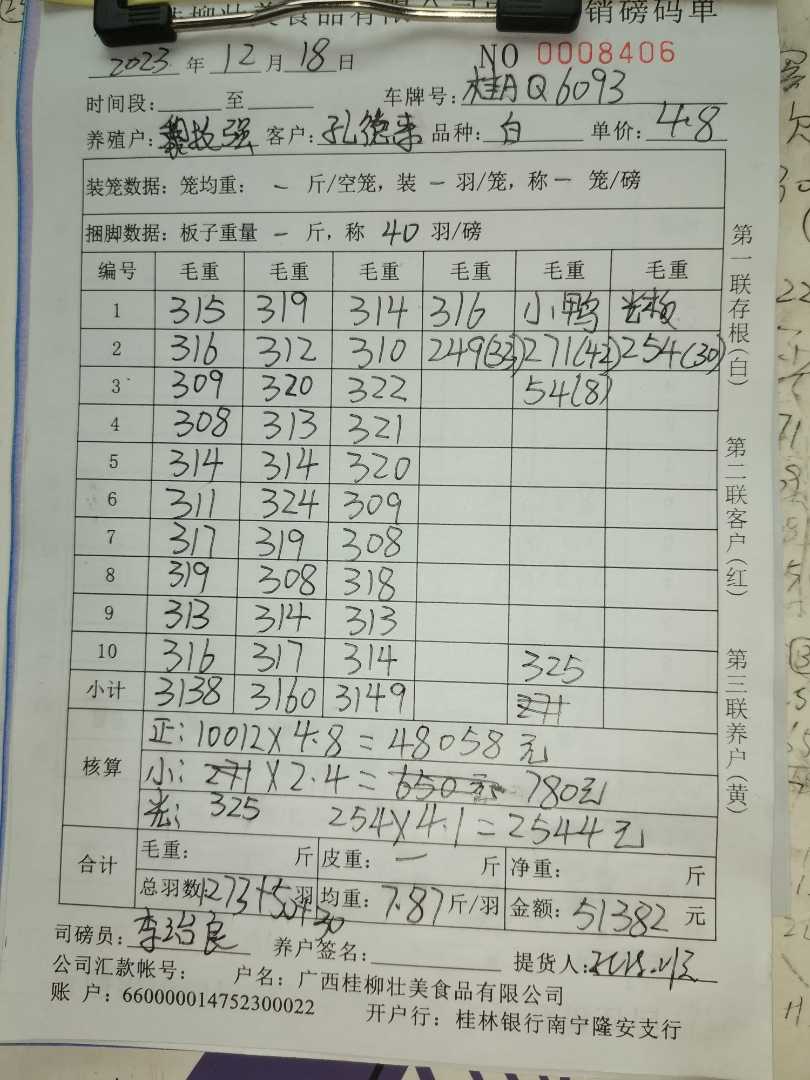 桂柳壮美食品有限公司 销磅码单
2023 年 12 月 18 日 NO 0008406
时间段: 至 车牌号: 桂A Q6093
养殖户: 强 客户: 孔德来 品种: 白 单价: 4.8
装笼数据: 笼均重: 一 斤/空笼, 装 一 羽/笼, 称 一 笼/磅
捆脚数据: 板子重量 一 斤, 称 40 羽/磅
编号 毛重 毛重 毛重 毛重 毛重 毛重
1 315 319 314 316 小鸭 光板
2 316 312 310 249(33) 271(42) 254(30)
3 309 320 322 54(8)
4 308 313 321
5 314 314 320
6 311 324 309
7 317 319 308
8 319 308 318
9 313 314 313
10 316 317 314 325
小计 3138 3160 3149 271
核算 正: 10012×4.8=48058元
小: 271×2.4=650元 780元
光: 325 254×4.1=2544元
合计 毛重: 斤 皮重: 一 斤 净重: 斤
总羽数: 1273+50+30 羽 均重: 7.87 斤/羽 金额: 51382 元
司磅员: 李治良 养户签名: 提货人:
公司汇款帐号: 户名: 广西桂柳壮美食品有限公司
账 户: 660000014752300022 开户行: 桂林银行南宁隆安支行
第一联存根(白) 第二联客户(红) 第三联养户(黄)